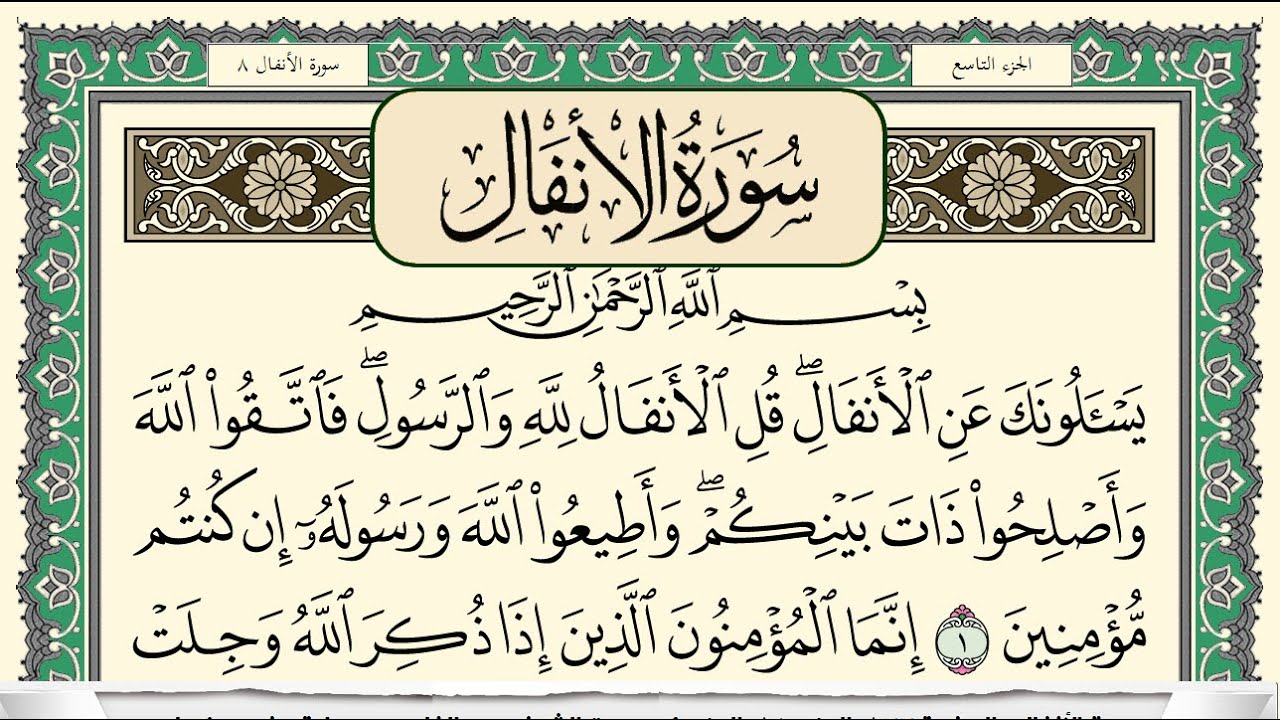 الجزء التاسع
سورة الأنفال ٨
سُورَةُ الأَنفَالِ
بِسْمِ ٱللَّهِ ٱلرَّحْمَٰنِ ٱلرَّحِيمِ
يَسْـَٔلُونَكَ عَنِ ٱلْأَنفَالِۖ قُلِ ٱلْأَنفَالُ لِلَّهِ وَٱلرَّسُولِۖ فَٱتَّقُوا۟ ٱللَّهَ
وَأَصْلِحُوا۟ ذَاتَ بَيْنِكُمْۖ وَأَطِيعُوا۟ ٱللَّهَ وَرَسُولَهُۥٓ إِن كُنتُم
مُّؤْمِنِينَ ١ إِنَّمَا ٱلْمُؤْمِنُونَ ٱلَّذِينَ إِذَا ذُكِرَ ٱللَّهُ وَجِلَتْ